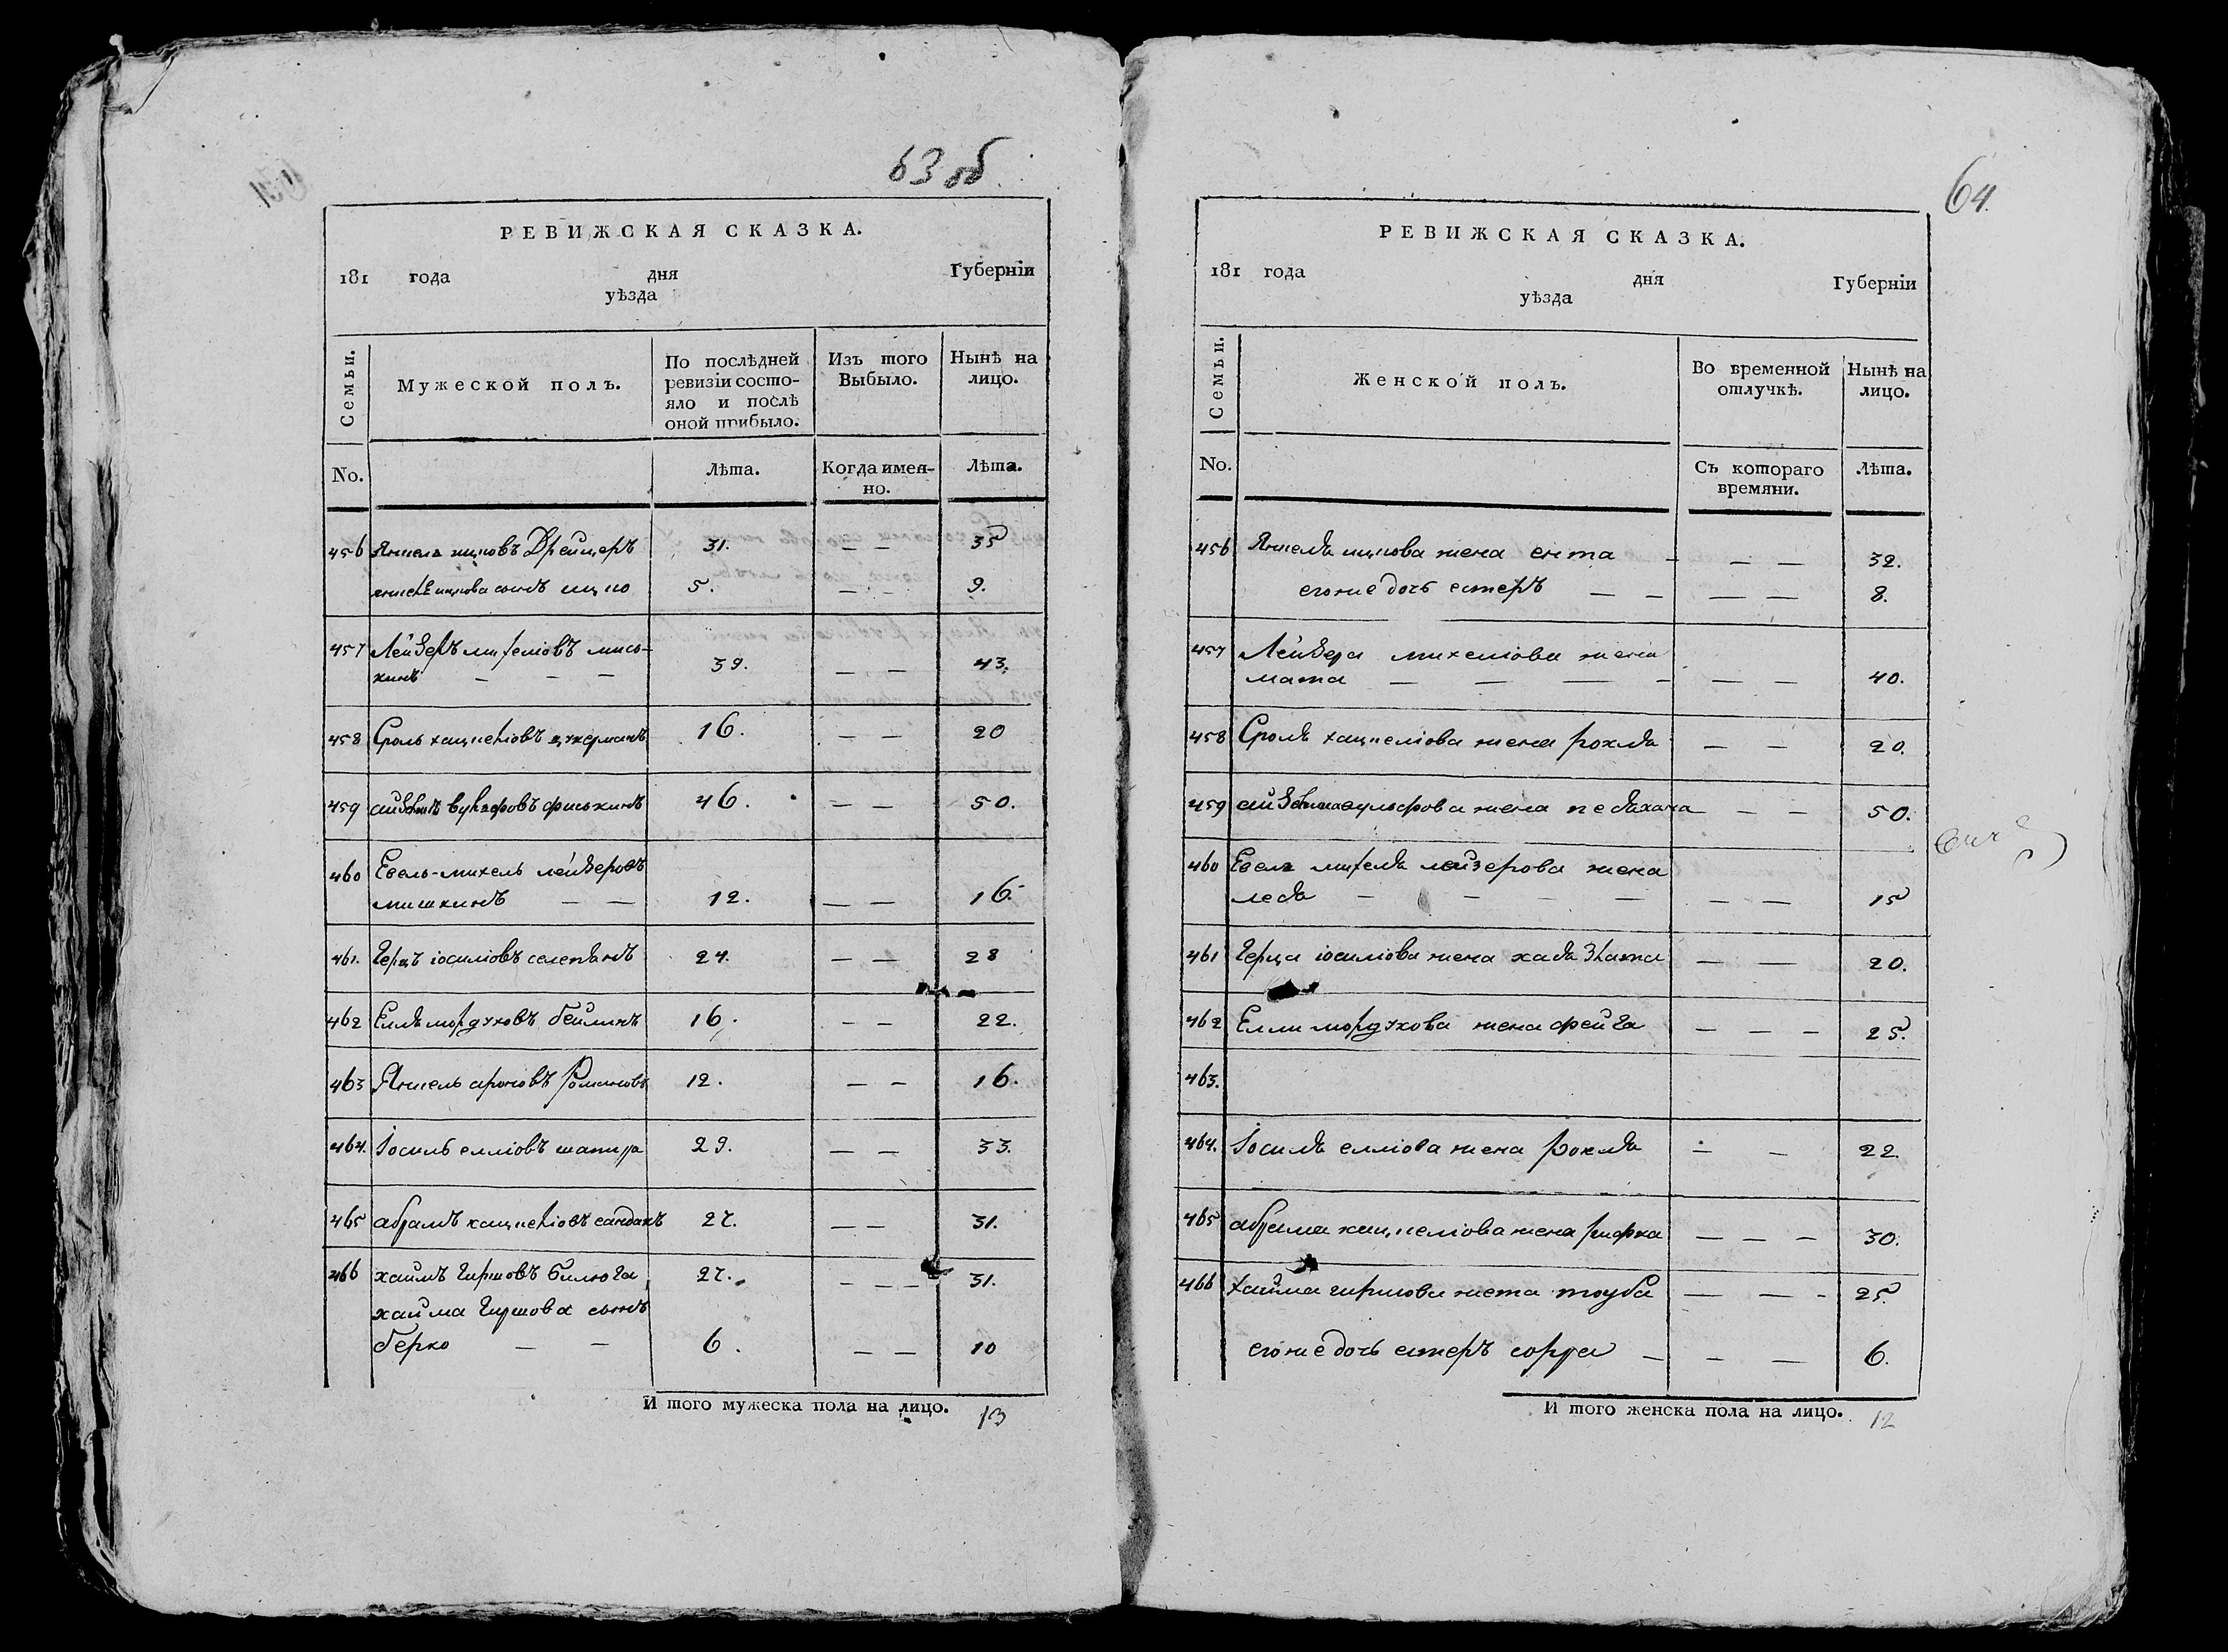 63 об.
РЕВИЖСКАЯ СКАЗКА.
181 года дня Губерніи
уѣзда
Семьи. Мужеской полъ. По послѣдней ревизіи состояло и послѣ оной прибыло. Изъ того Выбыло. Нынѣ на лицо.
No. Лѣта. Когда именно. Лѣта.
456 Янкель ицковъ Дрейцеръ 31. — — 35
сынъ ицко 5. — — 9.
457 Лейзеръ михеліовъ мись-
кинъ — — — 39. — — 43.
458 Сроль хацкеліовъ цукерманъ 16. — — 20
459 вульфовъ фишкинъ 46. — — 50.
460 Евель-михель лейзеровъ
мишкинъ — — 12. — — 16.
461. Герцъ іосиліовъ 24. — — 28
462 Елль мордуховъ бейлинъ 16. — — 22.
463 Янкель ароновъ Романовъ 12. — — 16.
464. Іосиль елліовъ шапира 29. — — 33.
465 абрамъ хацкеліовъ 27. — — 31.
466 хаимъ гиршовъ билюга 27. — — — 31.
хайма гиршова сынъ
берко — — 6. — — 10
И того мужеска пола на лицо. 13
64.
РЕВИЖСКАЯ СКАЗКА.
181 года дня Губерніи
уѣзда
Семьи. Женской полъ. Во временной отлучкѣ. Нынѣ на лицо.
No. Съ котораго времяни. Лѣта.
456 Янкеля ицкова жена ента — — — 32.
его же дочь естеръ — — — — 8.
457 Лейзера михеліова жена
мата — — — — — — 40.
458 Сроля хацкеліова жена рохля — — 20.
459 вульфова жена песяхана — — 50.
460 Евеля михеля лейзерова жена
леся — — — — — — 15
461 Герца іосиліова жена хася злата — — 20.
462 Елли мордухова жена фейга — — — 25.
463.
464. Іосиля елліова жена рохля — — 22.
465 абрама хацкеліова жена рифка — — — 30.
466 хаима гиршова жена тоуба — — — 25.
его же дочь естеръ сорра — — — 6.
И того женска пола на лицо. 12